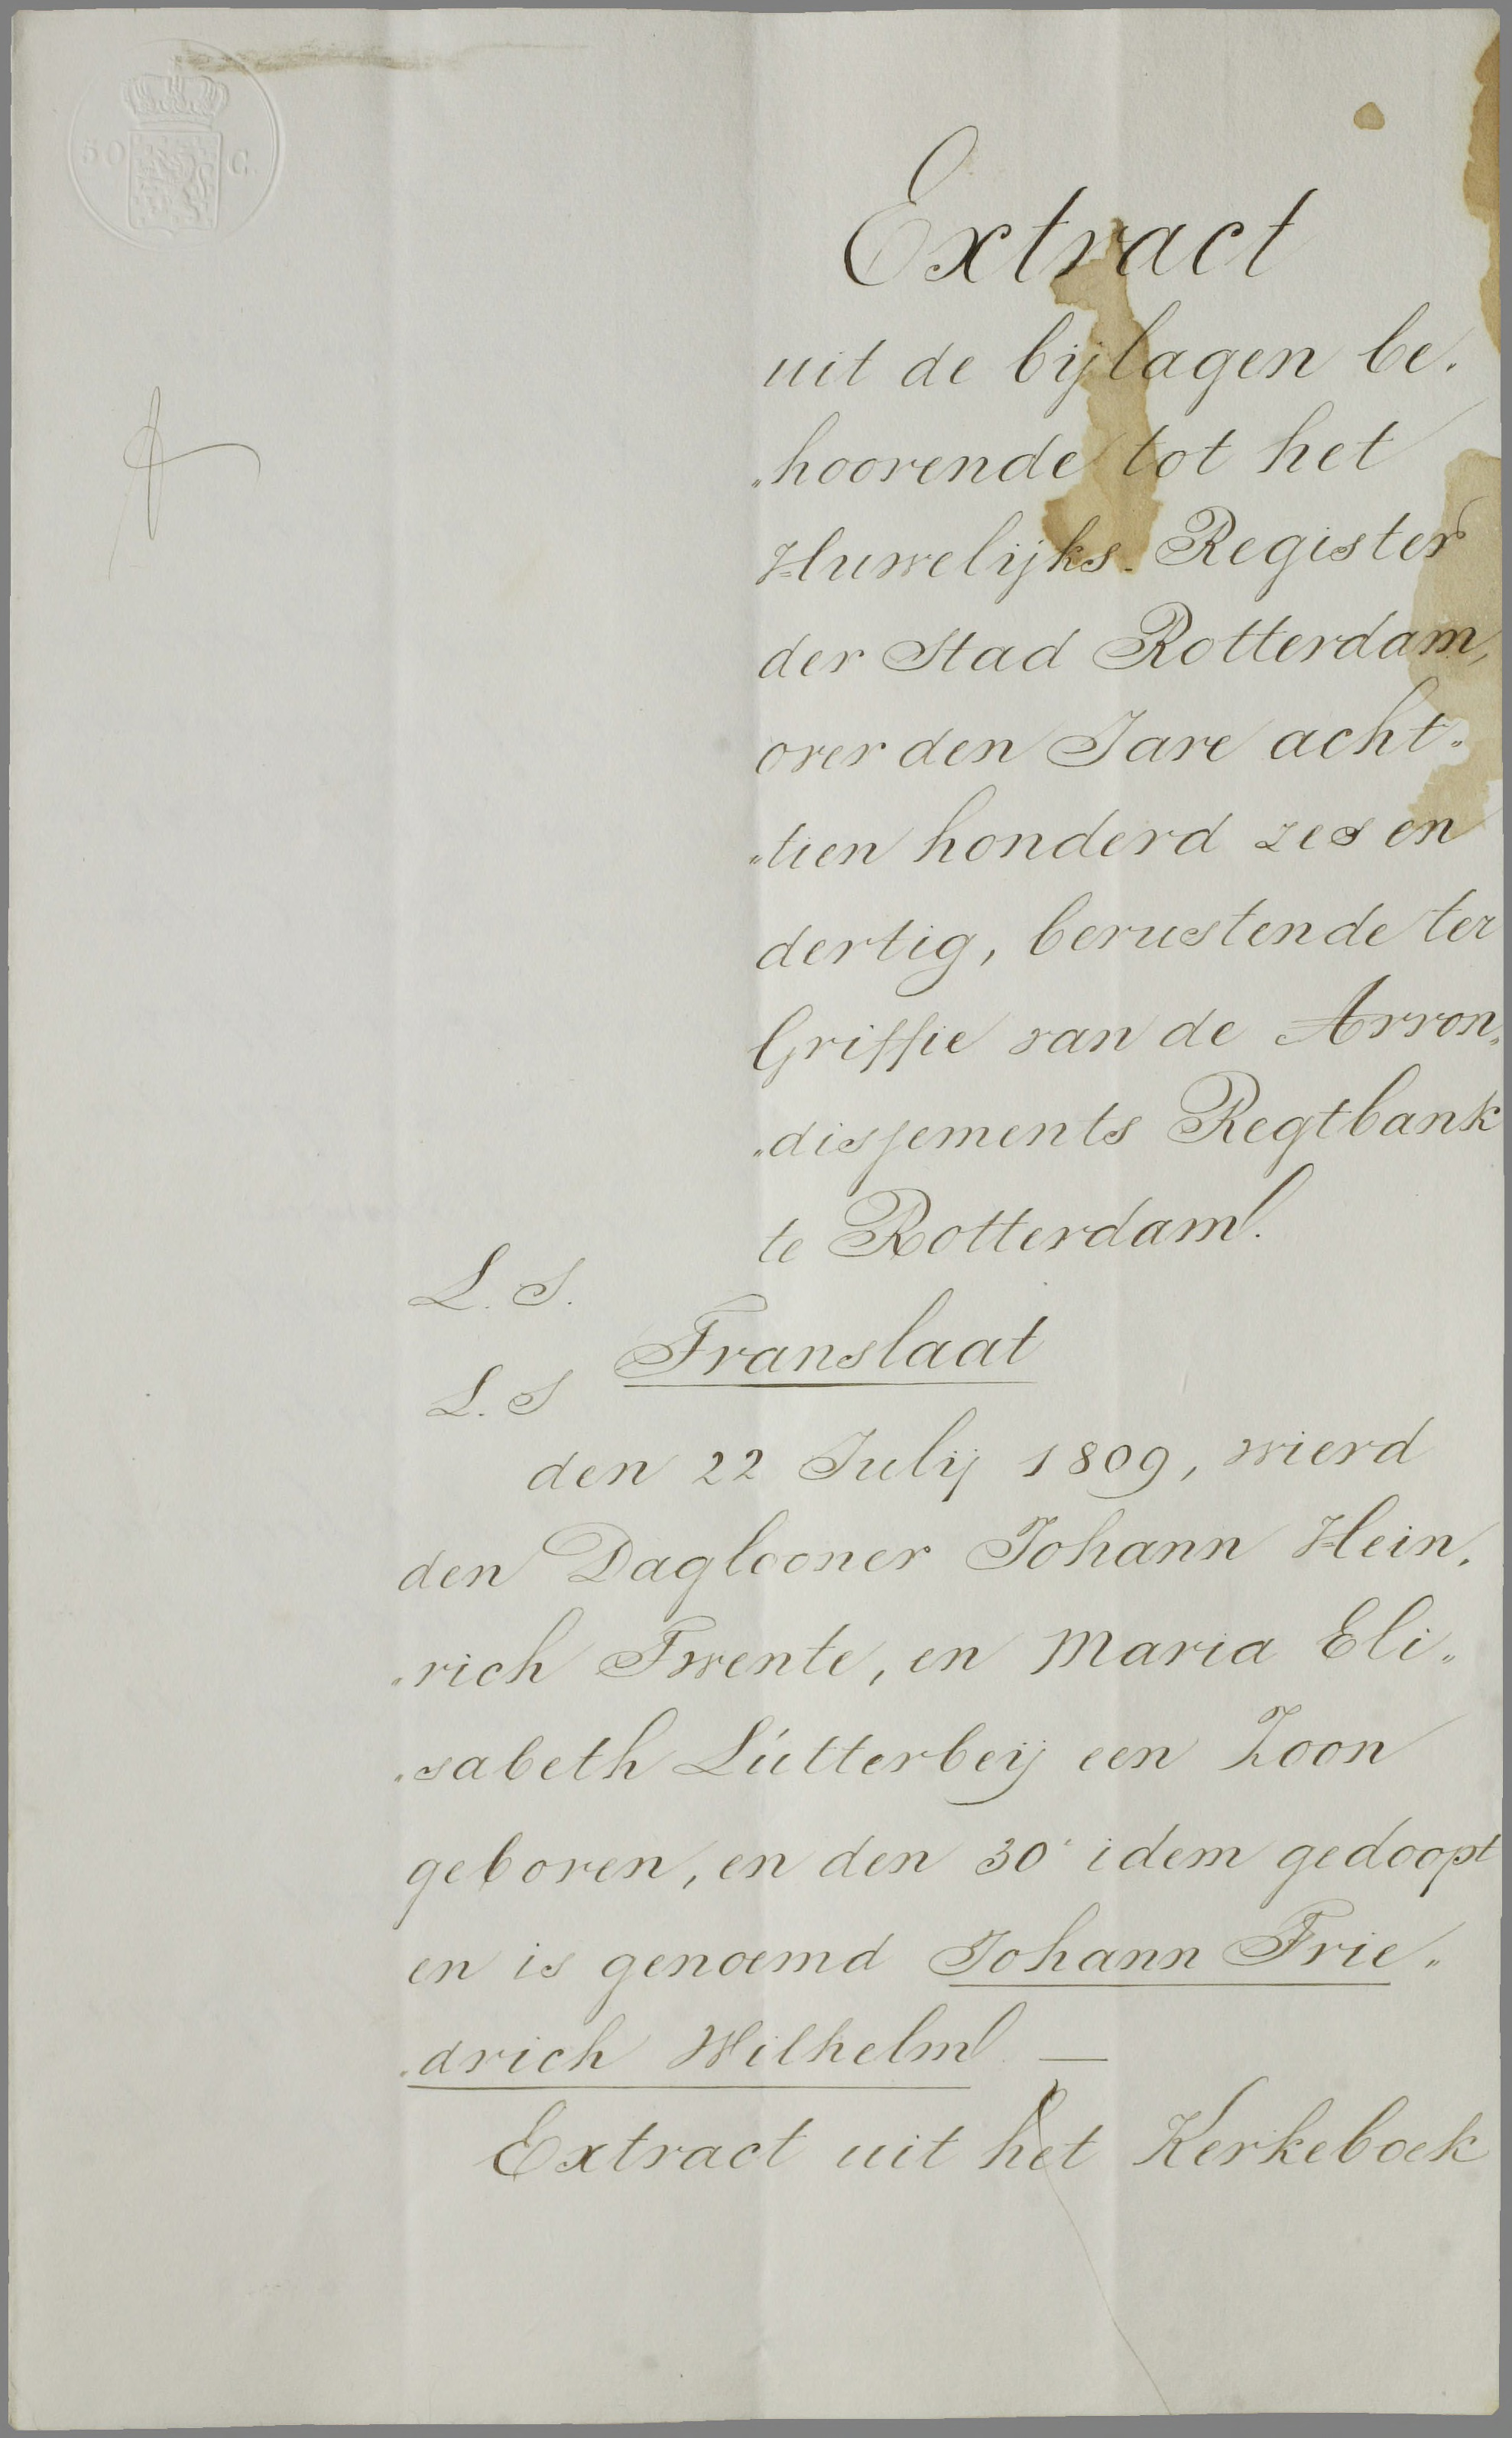 50 C.
Extract
uit de bijlagen be„
„hoorende tot het
Huwelijks-Register
der Stad Rotterdam,
over den Jare acht„
„tien honderd zes en
dertig, berustende ter
Griffie van de Arron„
„dissements Regtbank
te Rotterdam.
L. S.
Translaat
L. S
den 22 Julij 1809, wierd
den Daglooner Johann Hein„
„rich Twente, en Maria Eli„
„sabeth Lútterbeij een Zoon
geboren, en den 30' idem gedoopt
en is genoemd Johann Frie„
„drich Wilhelm. —
Extract uit het Kerkeboek